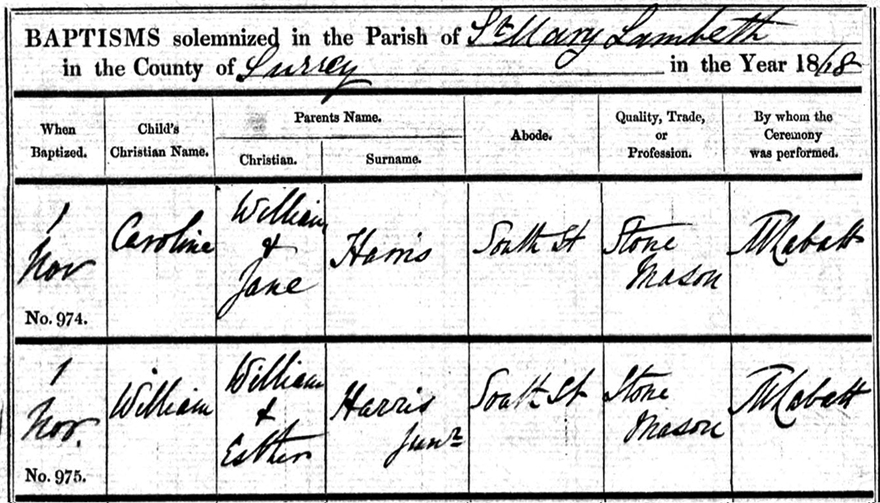 BAPTISMS solemnized in the Parish of St Mary Lambeth
in the County of Surrey in the Year 18
When Baptized.
Child's Christian Name.
Parents Name.
Christian.
Surname.
Abode.
Quality, Trade, or Profession.
By whom the Ceremony was performed.
1
Nov
No. 974.
Caroline
William
&
Jane
Harris
South St
Stone
Mason
1
Nov.
No. 975.
William
William
&
Esther
Harris
Junr
South St
Stone
Mason